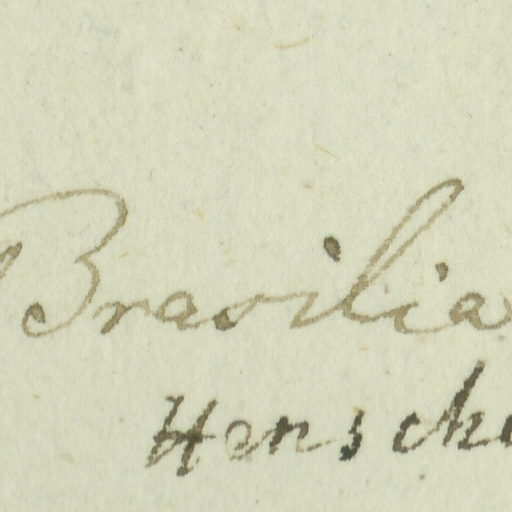 Brasilia
Hensche